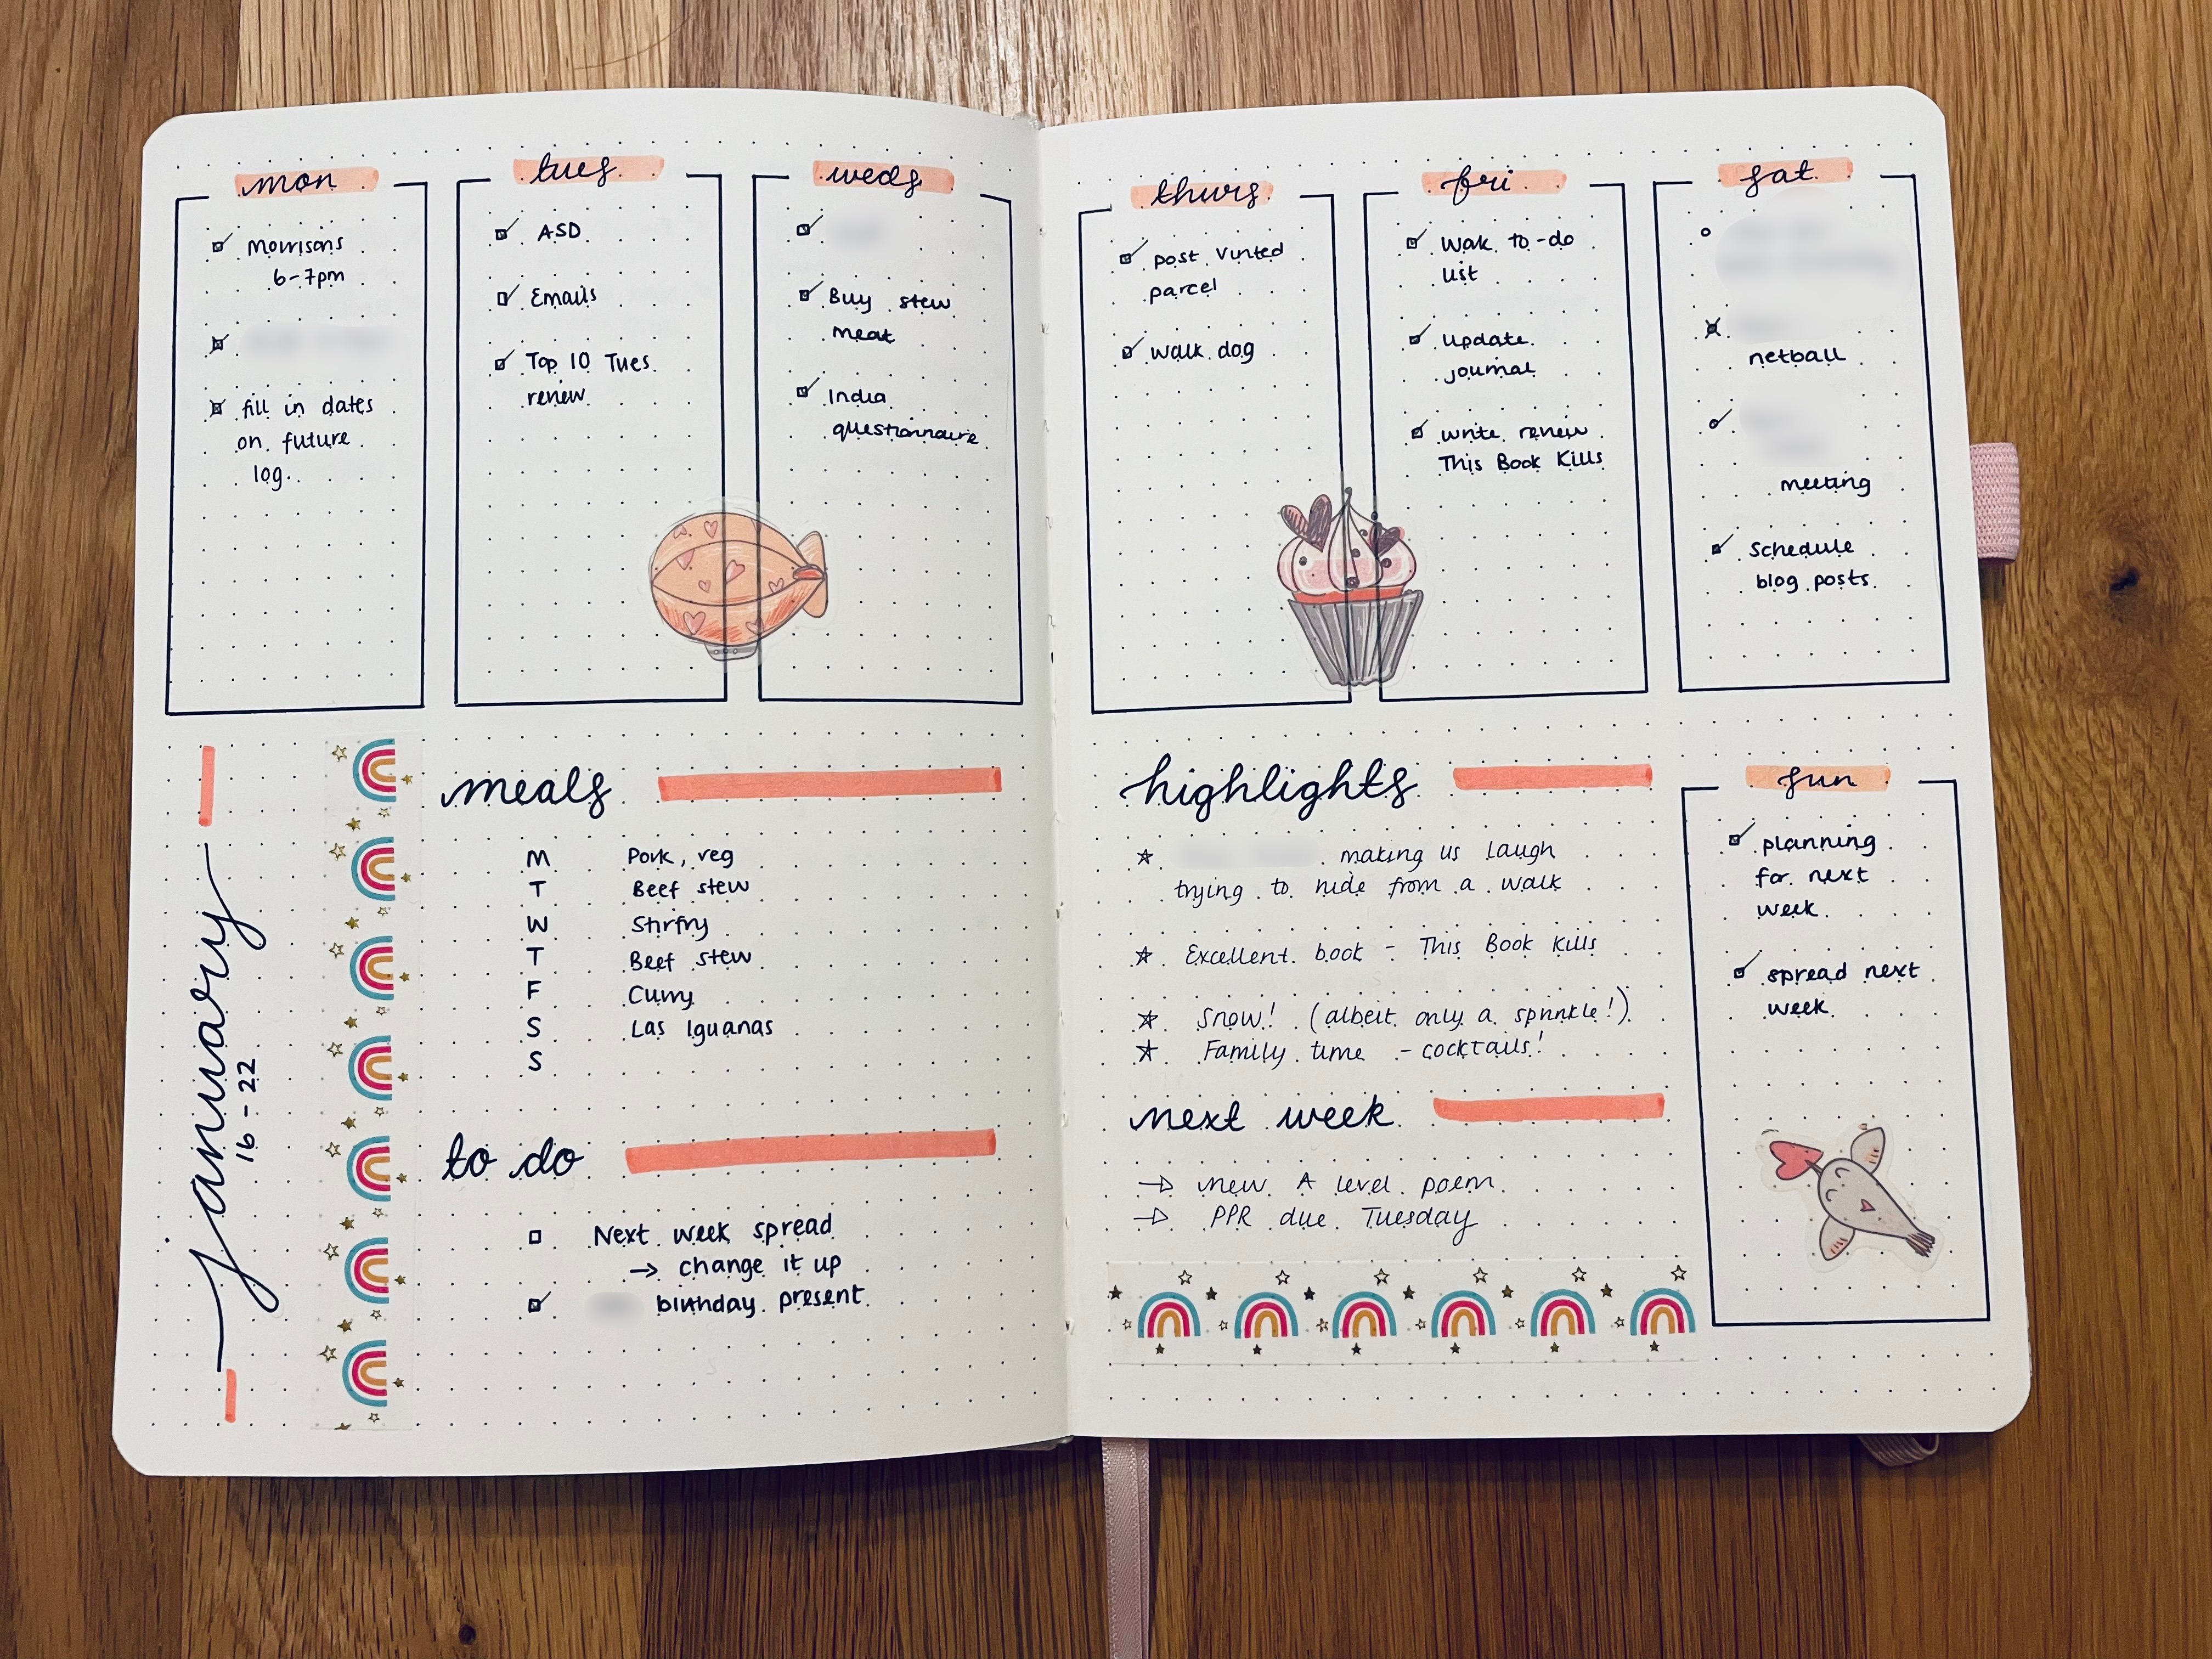 mon
Morrisons
6-7pm
fill in dates
on future
log.
tues
ASD
Emails
Top 10 Tues
review
weds
Buy stew
meat
India
questionnaire
thurs
post Vinted
parcel
walk dog
fri
Wak to-do
list
update
journal
write review
This Book Kills
sat
netball
meeting
Schedule
blog posts
january
16-22
meals
M Pork, reg
T Beef stew
W Stirfry
T Beef stew
F Curry
S Las Iguanas
S
to do
Next week spread
→ change it up
birthday present
highlights
making us laugh
trying to hide from a walk
Excellent book - This Book Kills
Snow! (albeit only a sprinkle!)
Family time - cocktails!
next week
→ new A level poem
→ PPR due Tuesday
sun
planning
for next
week
spread next
week